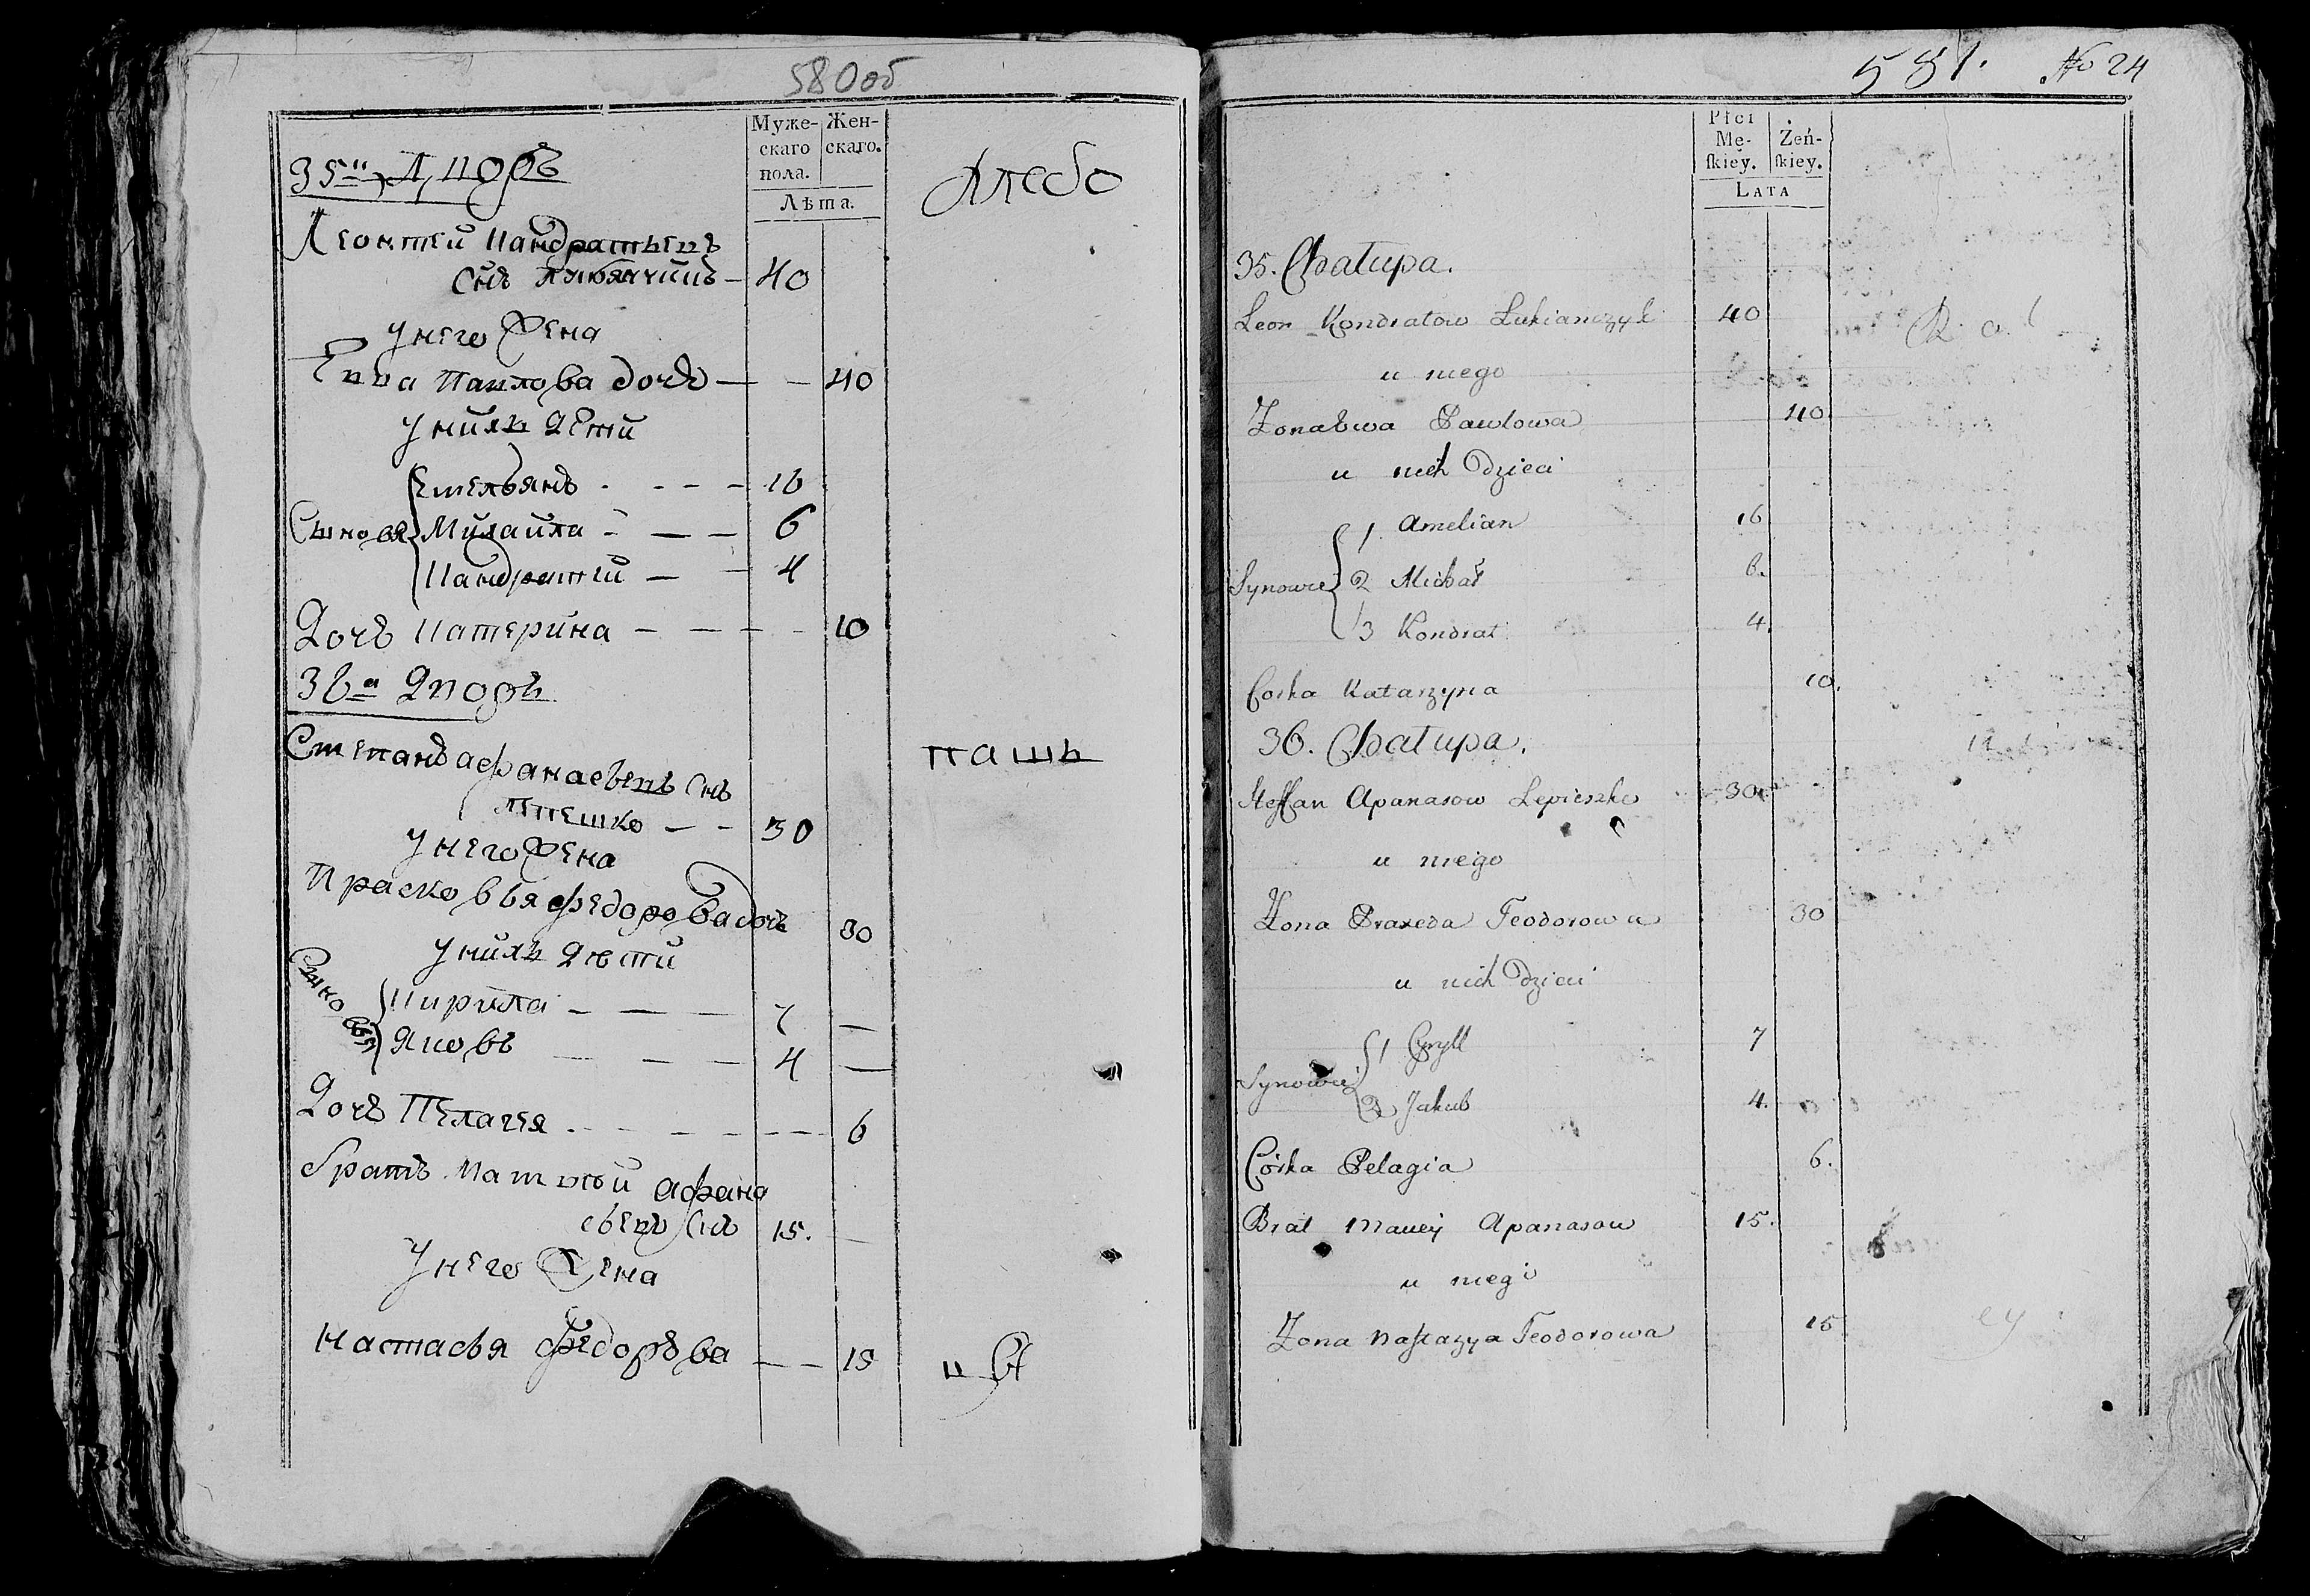 580об
Муже-
скаго
пола.
Жен-
скаго.
Лѣта.
35й Двофъ
Хлебо
Леонтей Кандратьевъ
сынъ Лукянчикъ — 40
У него жена
Евва Павлова дочь — — 40
У нихъ дети
Емельянъ - - - - 16
Сыновя Михайла - — — 6
Кандратей — — 4
Дочь Катерина — — — - 10
36й Двофъ
Степанъ афанасьевъ снъ
пашъ
лепешко — - 30
У него жена
Прасковья федорова дочь 30
У нихъ дѣти
Сыновья
Кирила — — — 7 —
Яковъ — — — 4 —
Дочь Пелагея - - - — — - - 6
братъ Матвѣй афана
сьевъ снъ 15. —
У него жена
Настасья федорова — — 15
580
581. No 24
Płci
Mę-
skiey.
Żeń-
skiey.
LATA
35. Chałupa.
Leon Kondratow Łukianczyk 40
u niego
Zona Ewa Pawłowa 40
u nich Dzieci
1. Amelian 16
Synowie 2 Michał 6.
3 Kondrat 4.
Corka Katarzyna 10.
36. Chałupa.
Steffan Apanasow Lepieszko 30
u niego
Zona Praxeda Teodorowa 30
u nich Dzieci
1 Cyryll 7
Synowie
2 Jakub 4.
Córka Pelagia 6.
Brat Maciey Apanasow 15.
u niego
Zona Nastazya Teodorowa 15